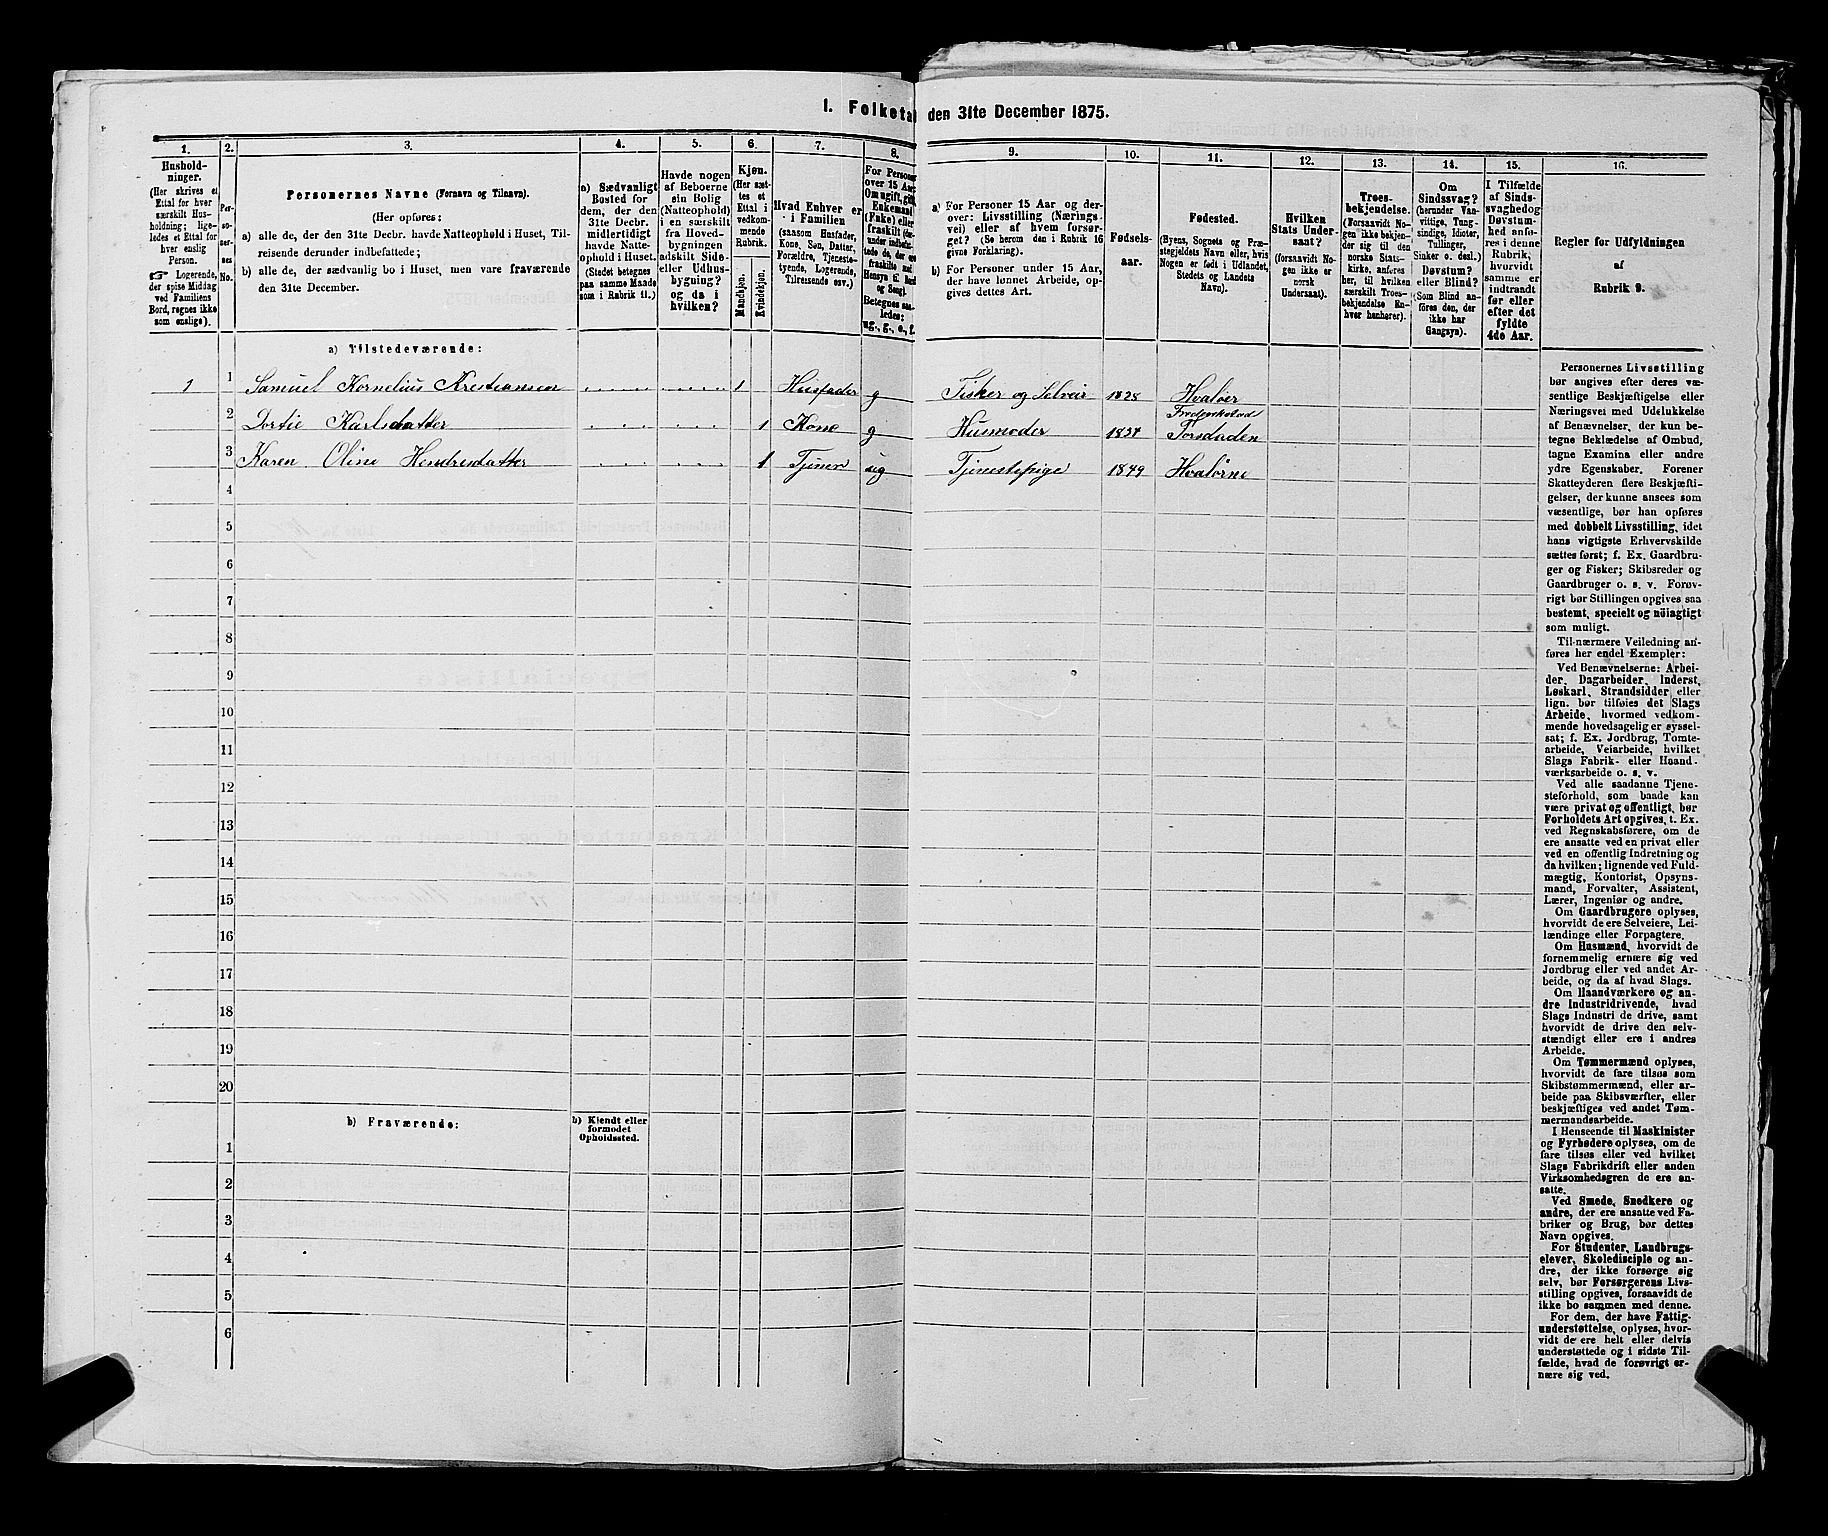 1. Folketal den 31te December 1875.
1.
2.
3.
4.
5.
6.
7.
8.
9.
10.
11.
12.
13.
14.
15.
16.
Hushold-
ninger.
(Her skrives et
Ettal for hver
særskilt Hus-
holdning; lige-
ledes et Ettal for
hver enslig
Person.
☞ Logerende,
der spise Middag
ved Familiens
Bord, regnes ikke
som enslige).
Per-
so-
ner-
nes
No.
Personernes Navne (Fornavn og Tilnavn).
(Her opføres:
a) alle de, der den 31te Decbr. havde Natteophold i Huset, Til-
reisende derunder indbefattede;
b) alle de, der sædvanlig bo i Huset, men vare fraværende
den 31te December.
a) Sædvanligt
Bosted for
dem, der den
31te Decbr.
midlertidigt
havde Natte-
ophold i Huset.
(Stedet betegnes
paa samme Maade
som i Rubrik 11.)
Havde nogen
af Beboerne
sin Bolig
(Natteophold)
i en særskilt
fra Hoved-
bygningen
adskilt Side-
eller Udhus-
bygning?
og da i
hvilken?
Kjøn.
(Her sæt-
tes et
Ettal i
vedkom-
mende
Rubrik.
Mandkjøn.
Kvindekjøn.
Hvad Enhver er
i Familien
(saasom Husfader,
Kone, Søn, Datter,
Forældre, Tjeneste-
tyende, Logerende,
Tilreisende osv.)
For Personer
over 15 Aar:
Om ugift, gift,
Enkemand
(Enke) eller
fraskilt
Betegnes saa-
ledes:
ug., g., e., f.
a) For Personer 15 Aar og der-
over: Livsstilling (Nærings-
vei) eller af hvem forsør-
get? (Se herom den i Rubrik 16
givne Forklaring).
b) For Personer under 15 Aar,
der have lønnet Arbeide, op-
gives dettes Art.
Fødsels-
aar.
Fødested.
(Byens, Sognets og Præ-
stegjeldets Navn eller, hvis
Nogen er født i Udlandet,
Stedets og Landets
Navn).
Hvilken
Stats Under-
saat?
(forsaavidt No-
gen ikke er
norsk
Undersaat).
Troes-
bekjendelse.
(Forsaavidt No-
gen ikke bekjen-
der sig til den
norske Stats-
kirke, anføres
her, til hvilken
særskilt Troes-
bekjendelse En-
hver henhører).
Om
Sindssvag?
(herunder Van-
vittige, Tung-
sindige, Idioter,
Tullinger,
Sinker o. desl.)
Døvstum?
eller Blind?
(Som Blind an-
føres den, der
ikke har
Gangsyn).
I Tilfælde
af Sinds-
svaghed og
Døvstum-
hed anfø-
res i denne
Rubrik,
hvorvidt
samme er
indtraadt
før eller
efter det
fyldte
4de Aar.
Regler for Udfyldningen
af
Rubrik 9.
a) Tilstedeværende:
1 1 Samuel Kornelius Krestiansen 1 Husfader g Fisker og Selveir 1828 Hvaløer
2 Dortie Karlsdatter 1 Kone g Husmoder 1837 Fredrikstad Torsdaden
3 Karen Oline Hendresdatter 1 Tjener ug Tjenestepige 1849 Hvalørne
4
5
6
7
8
9
10
11
12
13
14
15
16
17
18
19
20
b) Fraværende:
b) Kjendt eller
formodet
Opholdssted.
1
2
3
4
5
6
Personernes Livsstilling
bør angives efter deres væ-
sentlige Beskjæftigelse eller
Næringsvei med Udelukkelse
af Benævnelser, der kun be-
tegne Beklædelse af Ombud,
tagne Examina eller andre
ydre Egenskaber. Forener
Skatteyderen flere Beskjæfti-
gelser, der kunne ansees som
væsentlige, bør han opføres
med dobbelt Livsstilling, idet
hans vigtigste Erhvervskilde
sættes først; f. Ex. Gaardbru-
ger og Fisker; Skibsreder og
Gaardbruger o. s. v. Forøv-
rigt bør Stillingen opgives saa
bestemt, specielt og nöiagtigt
som muligt.
Til nærmere Veiledning an-
føres her endel Exempler:
Ved Benævnelserne: Arbei-
der, Dagarbeider, Inderst,
Løskarl, Strandsidder eller
lign. bør tilføies det Slags
Arbeide, hvormed vedkom-
mende hovedsagelig er syssel-
sat; f. Ex. Jordbrug, Tomte-
arbeide, Veiarbeide, hvilket
Slags Fabrik- eller Haand-
værksarbeide o. s. v.
Ved alle saadanne Tjene-
steforhold, som baade kan
være privat og offentligt, bør
Forholdets Art opgives, t. Ex.
ved Regnskabsførere, om de
ere ansatte ved en privat eller
ved en offentlig Indretning og
da hvilken; lignende ved Fuld-
mægtig, Kontorist, Opsyns-
mand, Forvalter, Assistent,
Lærer, Ingeniør og andre.
Om Gaardbrugere oplyses,
hvorvidt de ere Selveiere, Lei-
lændinge eller Forpagtere.
Om Husmænd, hvorvidt de
fornemmelig ernære sig ved
Jordbrug eller ved andet Ar-
beide, og da af hvad Slags.
Om Haandværkere og an-
dre Industridrivende, hvad
Slags Industri de drive, samt
hvorvidt de drive den selv-
stændigt eller ere i andres
Arbeide.
Om Tømmermænd oplyses,
hvorvidt de fare tilsøs som
Skibstømmermænd, eller ar-
beide paa Skibsværfter, eller
beskjæftiges ved andet Tøm-
mermandsarbeide.
I Henseende til Maskinister
og Fyrbødere oplyses, om de
fare tilsøs eller ved hvilket
Slags Fabrikdrift eller anden
Virksomhedsgren de ere an-
satte.
Ved Smede, Snedkere og
andre, der ere ansatte ved Fa-
briker og Brug, bør dettes
Navn opgives.
For Studenter, Landbrugs-
elever, Skoledisciple og an-
dre, der ikke forsørge sig
selv, bør Forsørgerens Livs-
stilling opgives, forsaavidt de
ikke bo sammen med denne.
For dem, der have Fattig-
understøttelse, oplyses, hvor-
vidt de ere helt eller delvis
understøttede og i sidste Til-
fælde, hvad de forøvrigt er-
nære sig ved.